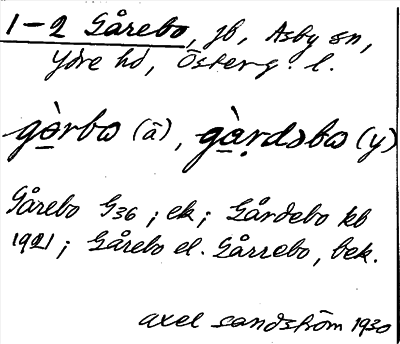 1-2 Gårebo, jb, Asby sn,
Ydre hd, Österg. l.
gə̀rbω (ä), gàrdsbω (y)
Gårebo G36; ek; Gårdebo kb
1921; Gårebo el. Gårrebo, bek.
Axel Sandström 1930